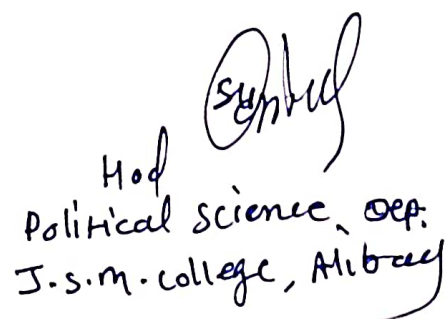 Hod
Political science, Dep.
J.S.M. college, Alibag